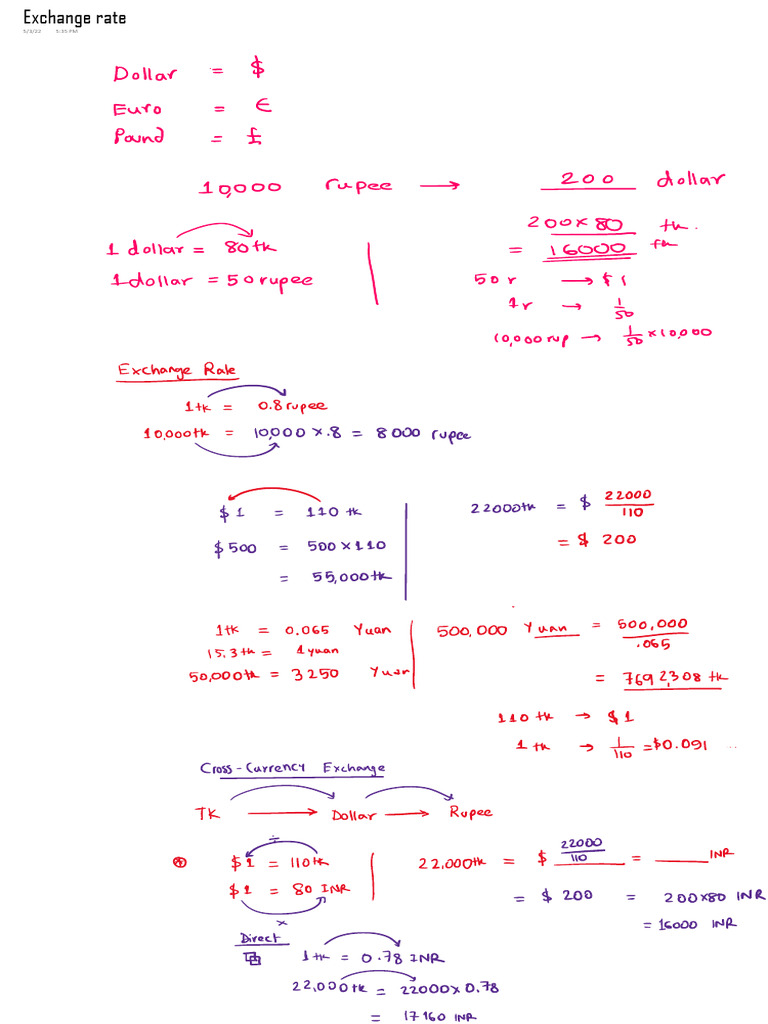 Exchange rate
5/3/22 5:35 PM
Dollar = $
Euro = €
Pound = £
10,000 rupee → 200 dollar
200 × 80 tk.
1 dollar = 80 tk
= 16000 tk
1 dollar = 50 rupee
50 r → $ 1
1 r → 1/50
10,000 rup → 1/50 × 10,000
Exchange Rate
1 tk = 0.8 rupee
10,000 tk = 10,000 × .8 = 8000 rupee
$ 1 = 110 tk
22000 tk = $ 22000/110
$ 500 = 500 × 110
= $ 200
= 55,000 tk
1 tk = 0.065 Yuan
500,000 Yuan = 500,000/.065
15.3 tk = 1 yuan
50,000 tk = 3250 Yuan
= 7692,308 tk
110 tk → $ 1
1 tk → 1/110 = $0.091 ..
Cross-Currency Exchange
TK → Dollar → Rupee
÷
$ 1 = 110 tk
22,000 tk = $ 22000/110 = ____ INR
$ 1 = 80 INR
= $ 200 = 200×80 INR
×
= 16000 INR
Direct
1 tk = 0.78 INR
22,000 tk = 22000 × 0.78
= 17160 INR